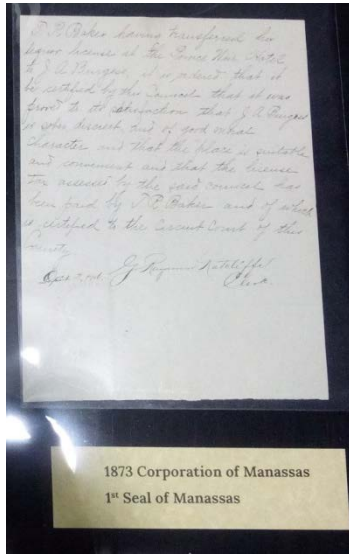 T. R. Baker having transferred his
liquor license at the Prince Wm. Hotel
to J. A. Burgess, it is ordered that it
be certified by this Council that it was
proved to its satisfaction that J. A. Burgess
is sober discreet and of good moral
character and that the place is suitable
and convenient and that the license
tax assessed by the said council has
been paid by T. R. Baker and of which
is certified to the Circuit Court of this
county
G. Raymond Ratcliffe
Clerk.
1873 Corporation of Manassas
1st Seal of Manassas